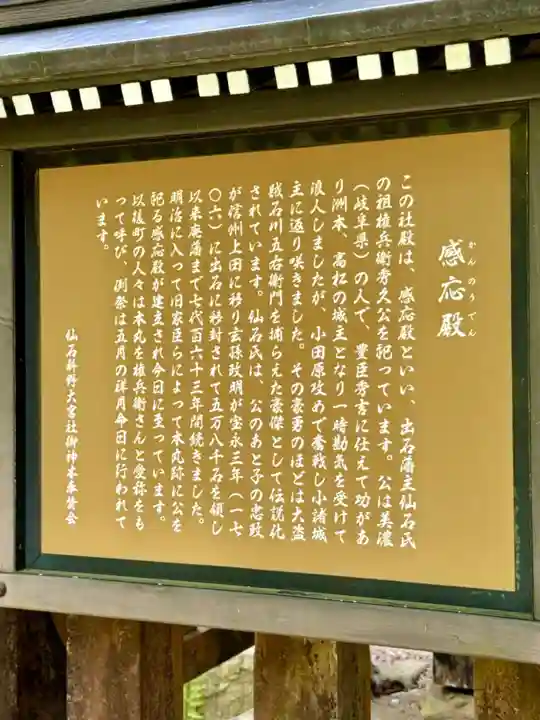 感応殿
かんのうでん
この社殿は、感応殿といい、出石藩主仙石氏
の祖権兵衛秀久公を祀っています。公は美濃
（岐阜県）の人で、豊臣秀吉に仕えて功があ
り洲本、高松の城主となり一時勘気を受けて
浪人しましたが、小田原攻めで奮戦し小諸城
主に返り咲きました。その豪勇のほどは大盗
賊石川五右衛門を捕らえた豪傑として伝説化
されています。仙石氏は、公のあと子の忠政
が信州上田に移り玄孫政明が宝永三年（一七
〇六）に出石に移封されて五万八千石を領し
以来廃藩まで七代百六十三年間続きました。
明治に入って旧家臣らによって本丸跡に公を
祀る感応殿が建立され今日に至っています。
以後町の人々は本丸を権兵衛さんと愛称をも
って呼び、例祭は五月の祥月命日に行われて
います。
仙石
大宮社御神木委員会